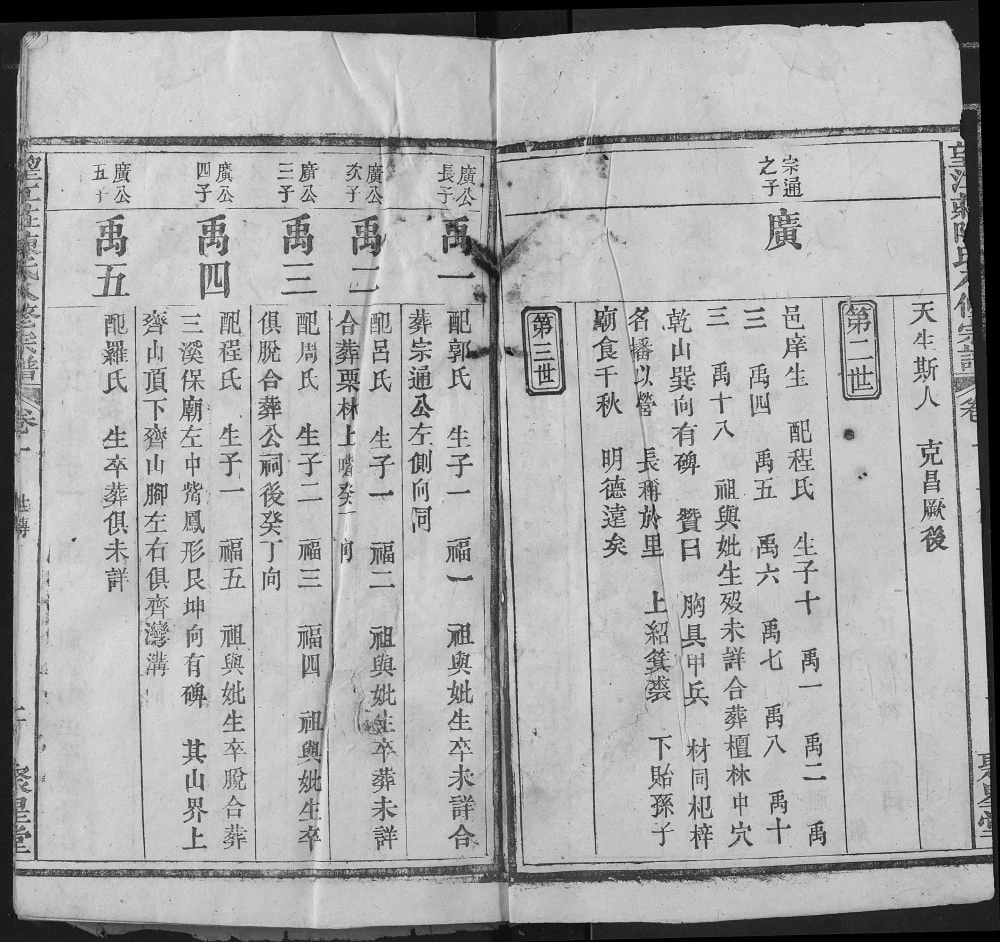 天生斯人 克昌厥後
第二世
宗通
之子
廣
邑庠生 配程氏 生子十 禹一 禹二 禹
三 禹四 禹五 禹六 禹七 禹八 禹十
三 禹十八 祖與妣生歿未詳合葬檀林中穴
乾山巽向有碑 贊曰 胸具甲兵 材同杞梓
名播以譽 長稱於里 上紹箕裘 下貽孫子
廟食千秋 明德遠矣
第三世
廣公
長子
禹一
配郭氏 生子一 福一 祖與妣生卒未詳合
葬宗通公左側向同
廣公
次子
禹二
配呂氏 生子一 福二 祖與妣生卒葬未詳
合葬栗林上嘴癸丁向
廣公
三子
禹三
配周氏 生子二 福三 福四 祖與妣生卒
俱脫合葬公祠後癸丁向
廣公
四子
禹四
配程氏 生子一 福五 祖與妣生卒脫合葬
三溪保廟左中嘴鳳形艮坤向有碑 其山界上
齊山頂下齊山腳左右俱齊灣溝
廣公
五子
禹五
配羅氏 生卒葬俱未詳
宗譜 卷一 世傳 聚星堂